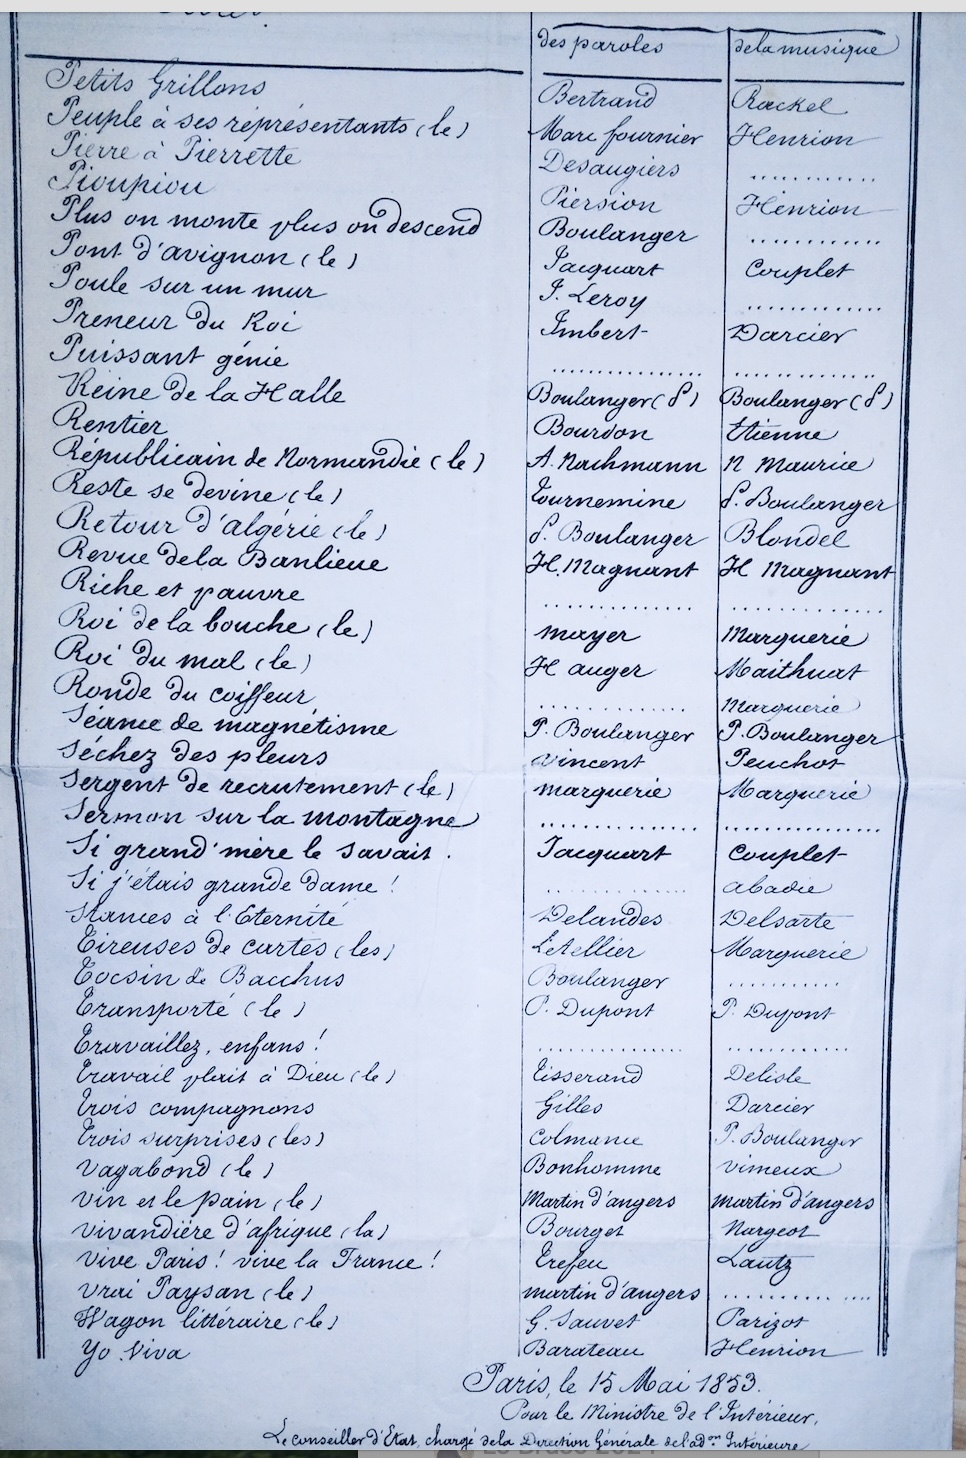 des paroles de la musique
Petits Grillons Bertrand Rackel
Peuple à ses réprésentants (le) Marc fournier Henrion
Pierre à Pierrette Desaugiers ............
Pioupiou Piersion Henrion
Plus on monte plus on descend Boulanger ............
Pont d'avignon (le) Jacquart Couplet
Poule sur un mur J. Leroy ............
Preneur du Roi Imbert Darcier
Puissant génie ............ ............
Reine de la Halle Boulanger (P) Boulanger (P)
Rentier Bourdon Etienne
Républicain de Normandie (le) A. Nachmann N Maurice
Reste se devine (le) Tournemine P. Boulanger
Retour d'algérie (le) P. Boulanger Blondel
Revue dela Banlieue H. Magnant H Magnant
Riche et pauvre ............ ............
Roi de la bouche (le) mayer Marguerie
Roi du mal (le) H auger Maithuat
Ronde du coiffeur ............ Marguerie
Séance de magnétisme P. Boulanger P. Boulanger
Séchez des pleurs Vincent Peuchot
Sergent de recrutement (le) marguerie Marguerie
Sermon sur la montagne ............ ............
Si grand'mère le savait. Jacquart Couplet
Si j'étais grande dame! ............ abadie
Stances à l'Eternité Delandes Delsarte
Tireuses de cartes (les) Letellier Marguerie
Tocsin de Bacchus Boulanger ............
Transporté (le) P. Dupont P. Dupont
Travaillez, enfans! ............ ............
Travail plait à Dieu (le) Tisserand Delisle
Trois compagnons Gilles Darcier
Trois surprises (les) Colmance P. Boulanger
Vagabond (le) Bonhomme Vimeux
Vin et le pain (le) Martin d'angers martin d'angers
Vivandière d'afrique (la) Bourget Nargeot
Vive Paris! vive la France! Trefeu Lautz
Vrai Paysan (le) martin d'angers ............
Wagon littéraire (le) G. Sauvet Parizot
Yo Viva Barateau Henrion
Paris, le 15 Mai 1853.
Pour le Ministre de l'Intérieur,
Le Conseiller d'Etat, chargé dela Direction Générale de l'adon Intérieure